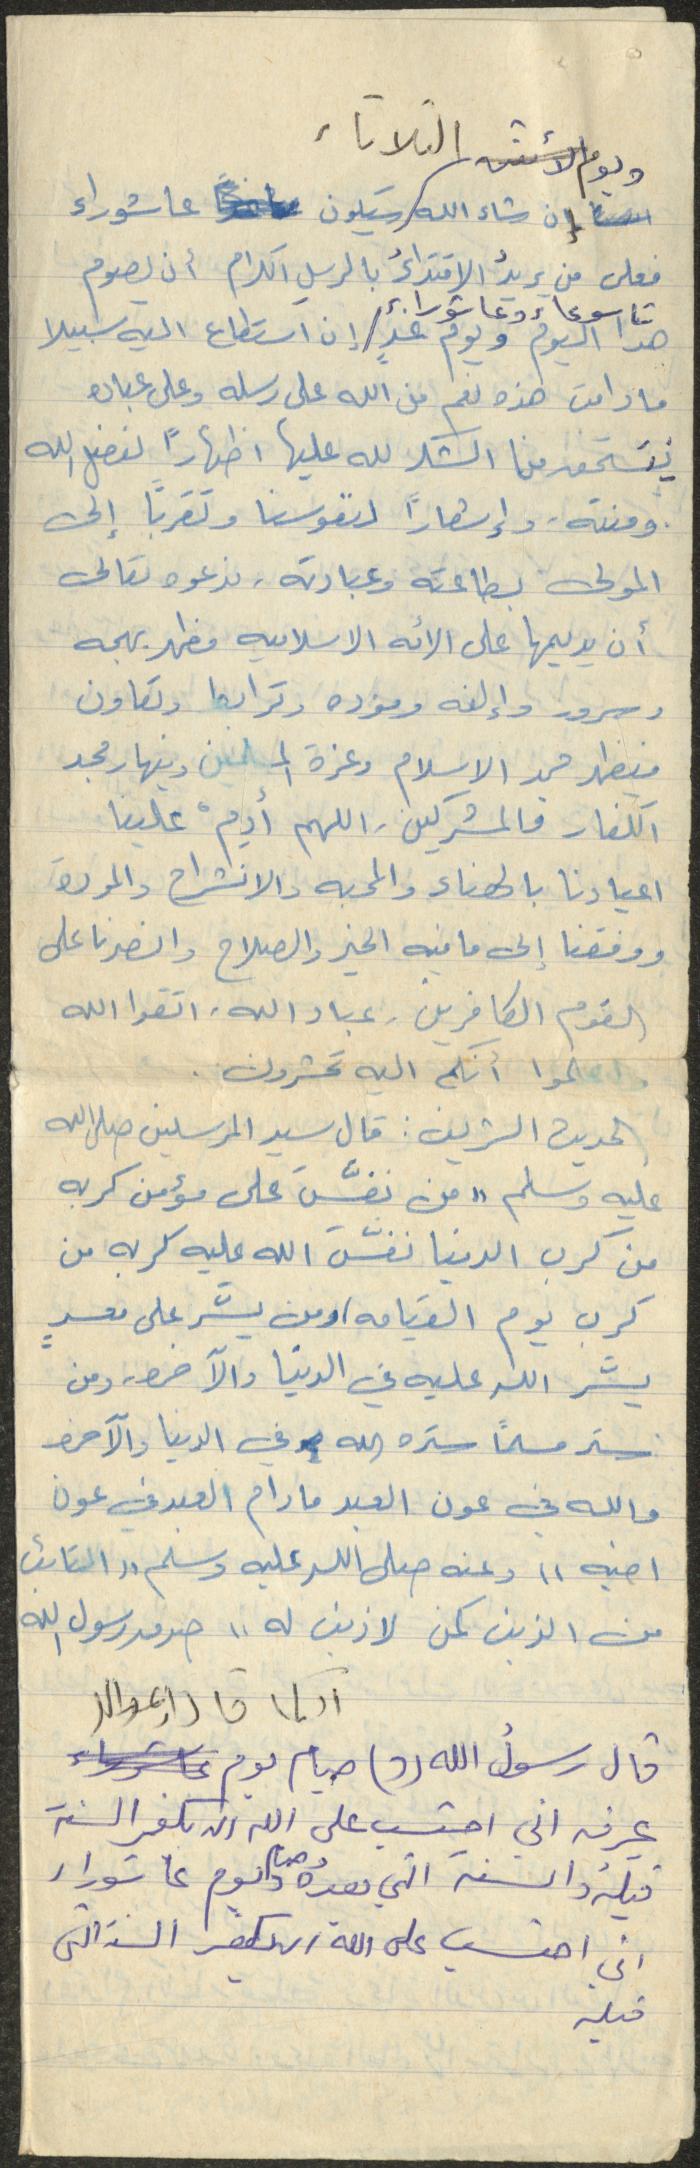 ويوم الاثنين الثلاثاء
إن شاء الله سيكون عاشوراء
فعلى من يريدُ الاقتداءُ بالرسل الكرام أن يصوم
تاسوعاء وعاشوراء
هذا اليوم ويوم غدٍ إن استطاع اليه سبيلا
ما دامت هذه نعم من الله على رسله وعلى عباده
يستحق منا الشكر لله عليها اظهاراً لفضل الله
ومنته، وإشعاراً لنفوسنا وتقرباً إلى
المولى بطاعته وعبادته، ندعوه تعالى
أن يديمها على الامه الاسلاميه مظهر بهجه
وسرور وإلفه وموده وترابط وتعاون
فيظهر مجد الاسلام وعزة المسلمين وينهار مجد
الكفار والمشركين، اللهم أدِم علينا
اعيادنا بالهناء والمحبه والانشراح والمودة
ووفقنا إلى ما فيه الخير والصلاح وانصرنا على
القوم الكافرين، عباد الله، اتقوا الله
واعلموا أنكم اليه تحشرون.
الحديث الشريف: قال سيد المرسلين صلى الله
عليه وسلم "من نفَّسَ على مؤمن كربه
من كرب الدنيا نفَّسَ الله عليه كربه من
كرب يوم القيامه، ومن يسَّر على معسرٍ
يسَّر الله عليه في الدنيا والآخره، ومن
ستر مسلماً ستره الله في الدنيا والآخره
والله في عون العبد ما دام العبد في عون
اخيه" وعنه صلى الله عليه وسلم "التائب
من الذنب كمن لا ذنب له" صدق رسول الله
أو كما قال
قال رسولُ الله (ص) صيام يوم عاشوراء
عرفه اني احتسب على الله ان يكفر السنة
قبلهُ والسنة التي بعدهُ وصيام يوم عاشوراء
اني احتسب على الله ان يكفر السنة التي
قبله